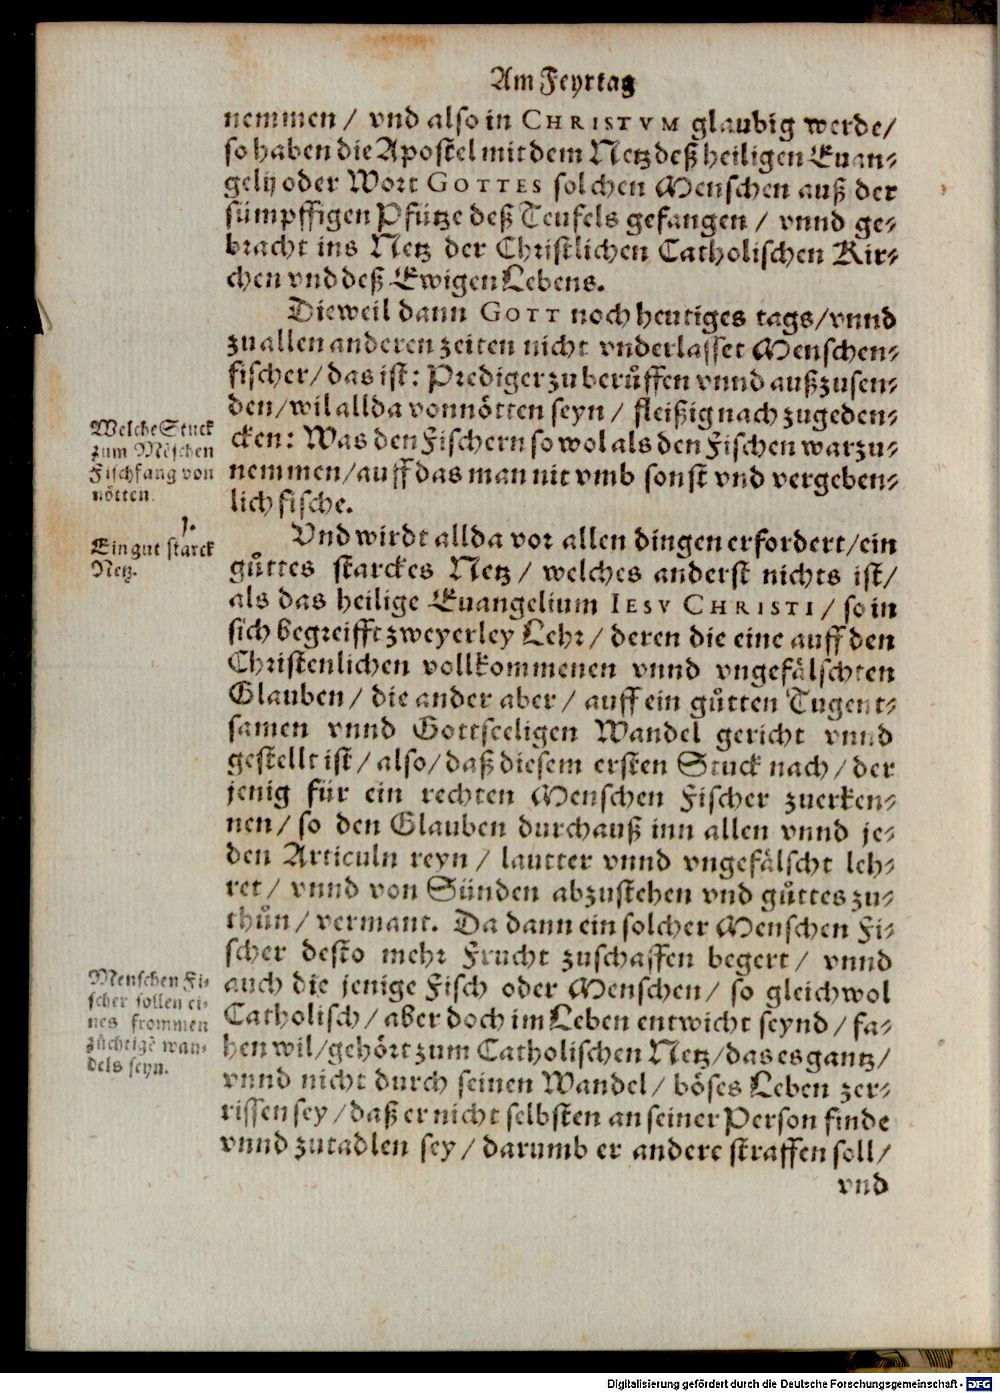 Am Feyrtag
nemmen / vnd also in CHRISTVM glaubig werde/
so haben die Apostel mit dem Netz deß heiligen Euan-
gelij oder Wort GOTTES solchen Menschen auß der
sümpffigen Pfütze deß Teufels gefangen / vnnd ge-
bracht ins Netz der Christlichen Catholischen Kir-
chen vnd deß Ewigen Lebens.
Dieweil dann GOTT noch heutiges tags/vnnd
zu allen anderen zeiten nicht vnderlasset Menschen-
fischer/ das ist: Prediger zu berůffen vnnd außzusen-
den/wil allda vonnötten seyn / fleißig nach zugeden-
cken: Was den Fischern so wol als den Fischen warzu-
nemmen/auff das man nit vmb sonst vnd vergeben-
lich fische.
Welche Stuck
zum Mēschen
Fischfang von
nötten.
Vnd wirdt allda vor allen dingen erfordert/ein
gůttes starckes Netz / welches anderst nichts ist/
als das heilige Euangelium IESV CHRISTI / so in
sich begreifft zweyerley Lehr / deren die eine auff den
Christenlichen vollkommenen vnnd vngefälschten
Glauben / die ander aber / auff ein gůtten Tugent-
samen vnnd Gottseeligen Wandel gericht vnnd
gestellt ist / also/ daß diesem ersten Stuck nach / der
jenig für ein rechten Menschen Fischer zuerken-
nen / so den Glauben durchauß inn allen vnnd je-
den Articuln reyn / lautter vnnd vngefälscht leh-
ret / vnnd von Sünden abzustehen vnd gůttes zu-
thůn / vermant. Da dann ein solcher Menschen Fi-
scher desto mehr Frucht zuschaffen begert / vnnd
auch die jenige Fisch oder Menschen / so gleichwol
Catholisch / aber doch im Leben entwicht seynd / fa-
hen wil/gehört zum Catholischen Netz/das es gantz/
vnnd nicht durch seinen Wandel / böses Leben zer-
rissen sey / daß er nicht selbsten an seiner Person finde
vnnd zutadlen sey / darumb er andere straffen soll/
1.
Ein gut starck
Netz.
Menschen Fi-
scher sollen ei-
nes frommen
züchtigē wan-
dels seyn.
vnd
Digitalisierung gefördert durch die Deutsche Forschungsgemeinschaft - DFG